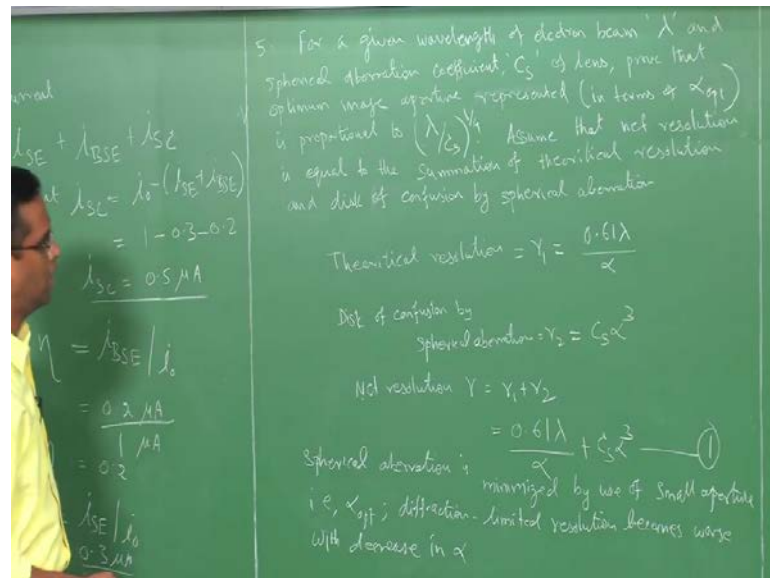 urrent
i_SE + i_BSE + i_SC
i_SC = i_0 - (i_SE + i_BSE)
= 1 - 0.3 - 0.2
i_SC = 0.5 μA
η = i_BSE / i_0
= 0.2 μA
1 μA
= 0.2
i_SE / i_0
0.3 μA
5. For a given wavelength of electron beam 'λ' and
spherical aberration coefficient, 'C_s' of lens, prove that
optimum image aperture represented (in terms of α_opt)
is proportional to (λ/C_s)^1/4. Assume that net resolution
is equal to the summation of theoritical resolution
and disk of confusion by spherical aberration
Theoritical resolution = r_1 = 0.61λ / α
Disk of confusion by
spherical aberration = r_2 = C_s α^3
Net resolution r = r_1 + r_2
= 0.61λ / α + C_s α^3 —— ①
Spherical aberration is minimized by use of small aperture
i.e, α_opt; diffraction-limited resolution becomes worse
with decrease in α